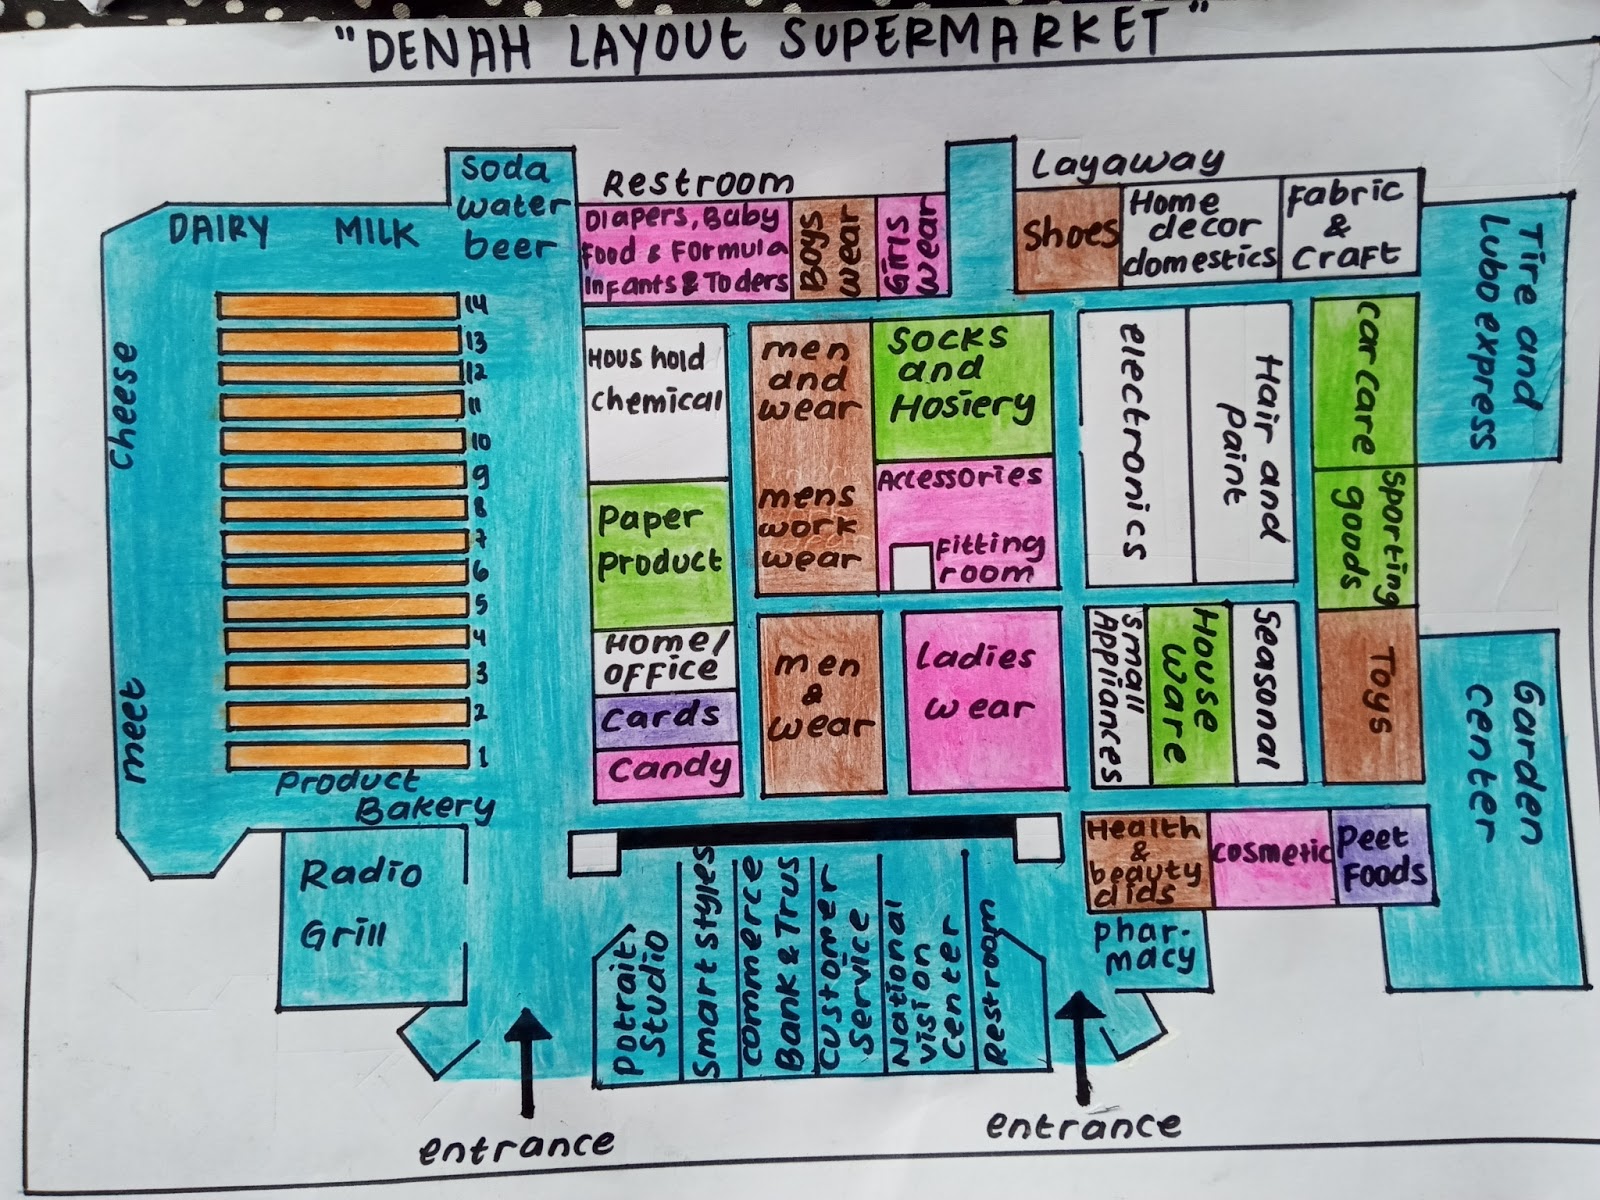 "DENAH LAYOUT SUPERMARKET"
Soda
water
beer
DAIRY MILK
Cheese
meet
14
13
12
11
10
9
8
7
6
5
4
3
2
1
Product
Bakery
Radio
Grill
Restroom
Diapers, Baby
food & Formula
infants & Toders
Boys
wear
Girls
wear
Layaway
Shoes
Home
decor
domestics
Fabric
&
Craft
Tire and
Lubo express
Hous hold
chemical
Paper
Product
Home/
Office
Cards
Candy
men
and
wear
mens
work
wear
Socks
and
Hosiery
Accessories
Fitting
room
men
&
wear
Ladies
wear
electronics
Hair and
Paint
Car care
Sporting
goods
Small
Appliances
House
Ware
Seasonal
Toys
Garden
Center
Health
&
beauty
dids
Cosmetic
Peet
Foods
Phar-
macy
Potrait
Studio
Smart styles
Commerce
Bank & Trus
Customer
Service
National
Vision
Center
Restroom
entrance
entrance